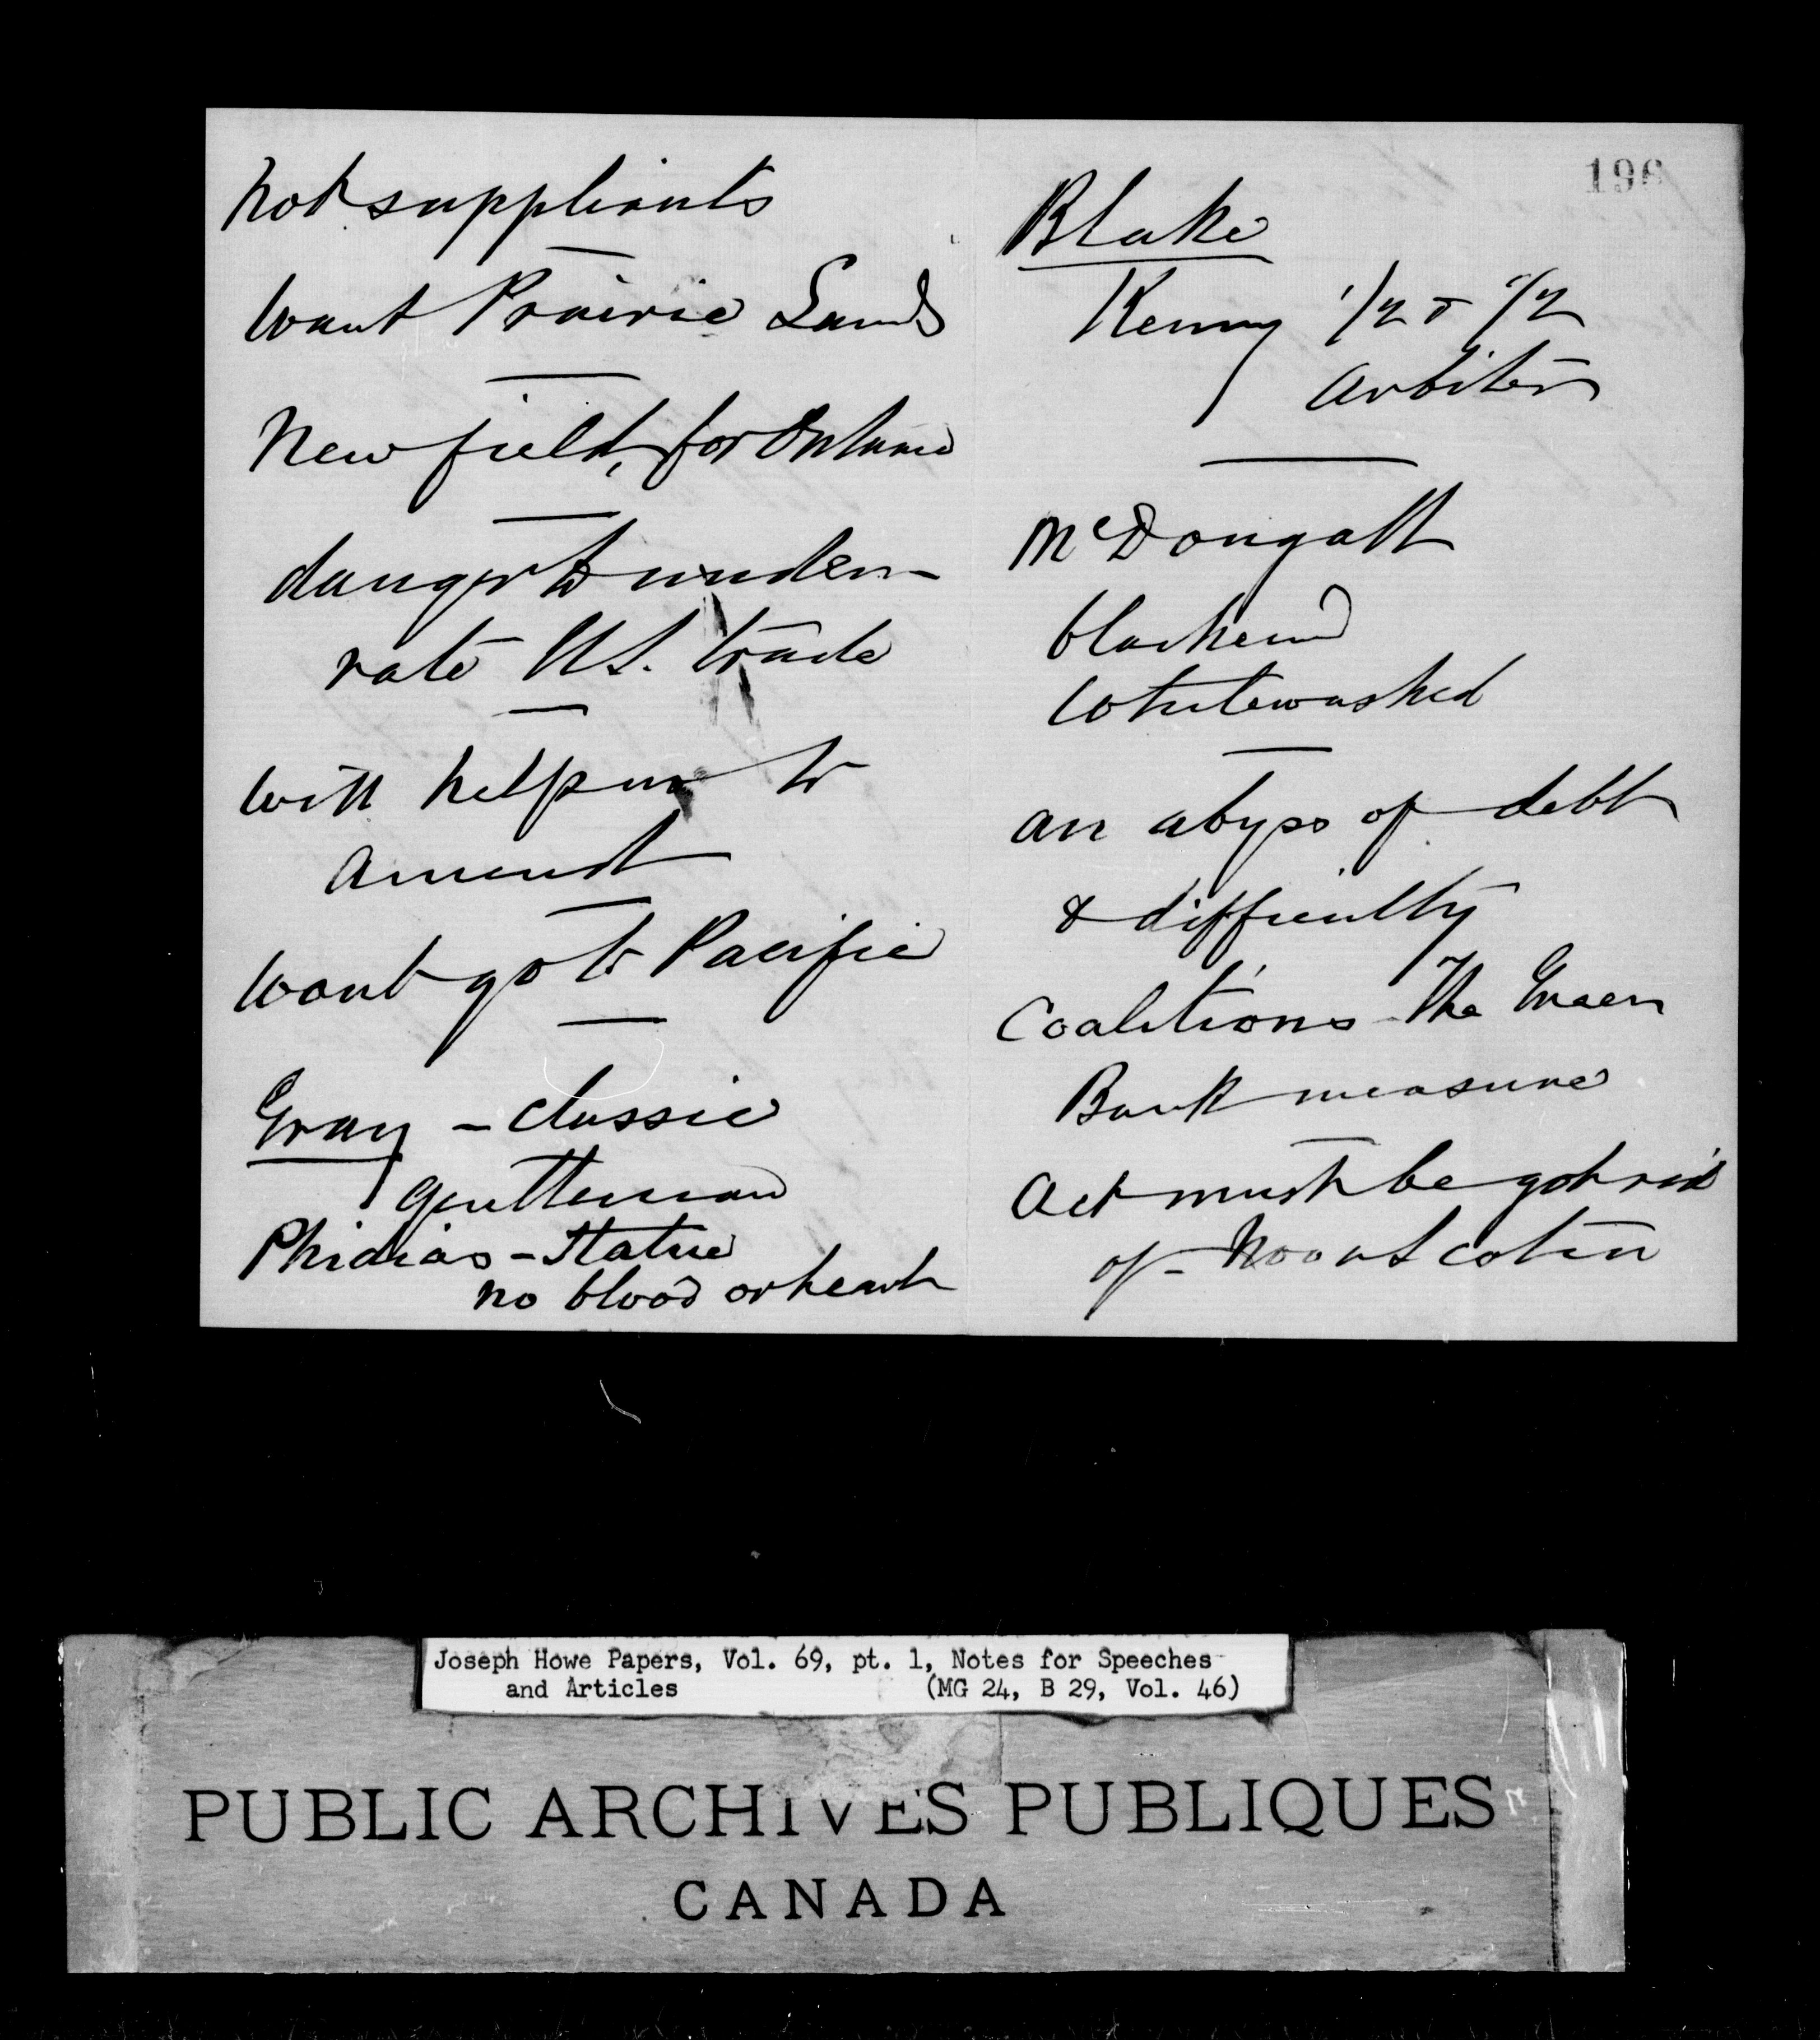 not suppliants
want Prairie Lands
New field, for Ontario
danger to under-
rate U.S. trade
will help us to
amend
wont go to Pacific
Gray - classic
gentleman
Phidias - Statue
no blood or heart
196
Blake
Kenny 1/2 & 1/2
arbiters
McDougall
blackened
Whitewashed
an abyss of debt
& difficulty
Coalitions - The
Bank measure
Act must be got rid
of - Nova Scotia
Joseph Howe Papers, Vol. 69, pt. 1, Notes for Speeches
and Articles (MG 24, B 29, Vol. 46)
PUBLIC ARCHIVES PUBLIQUES
CANADA